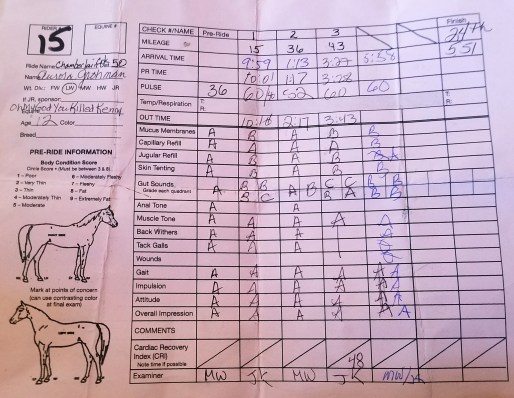 RIDER # EQUINE #
15
Ride Name Chamberlain 50
Name
Wt. Div.: FW LW MW HW JR
If JR, sponsor:
Equine OhMyGod You Killed Kenny
Age 12 Color
Breed
PRE-RIDE INFORMATION
Body Condition Score
Circle Score - (Must be between 3 & 8)
1 – Poor 6 – Moderately Fleshy
2 – Very Thin 7 – Fleshy
3 – Thin 8 – Fat
4 – Moderately Thin 9 – Extremely Fat
5 – Moderate
Mark at points of concern
(can use contrasting color
at final exam)
CHECK #/NAME Pre-Ride 1 2 3 Finish
24th
MILEAGE 15 36 43 5:51
ARRIVAL TIME 9:59 1:13 3:27 5:38
PR TIME 10:01 1:17 3:28
PULSE 36 60 52 60 60
Temp/Respiration T: R: T: R:
OUT TIME 2:17 3:43
Mucus Membranes A B A B B
Capillary Refill A B A A B
Jugular Refill A B A B
Skin Tenting A B A B B
Gut Sounds A B B B C A B C C B A B B B B
Grade each quadrant
Anal Tone A A
Muscle Tone A A A A
Back Withers A A A
Tack Galls A A A
Wounds
Gait A A A A A A
Impulsion A A A A A A
Attitude A A A A A
Overall Impression A A A A A
COMMENTS
Cardiac Recovery
Index (CRI) 48
Note time if possible
Examiner MW JK MW JK MW